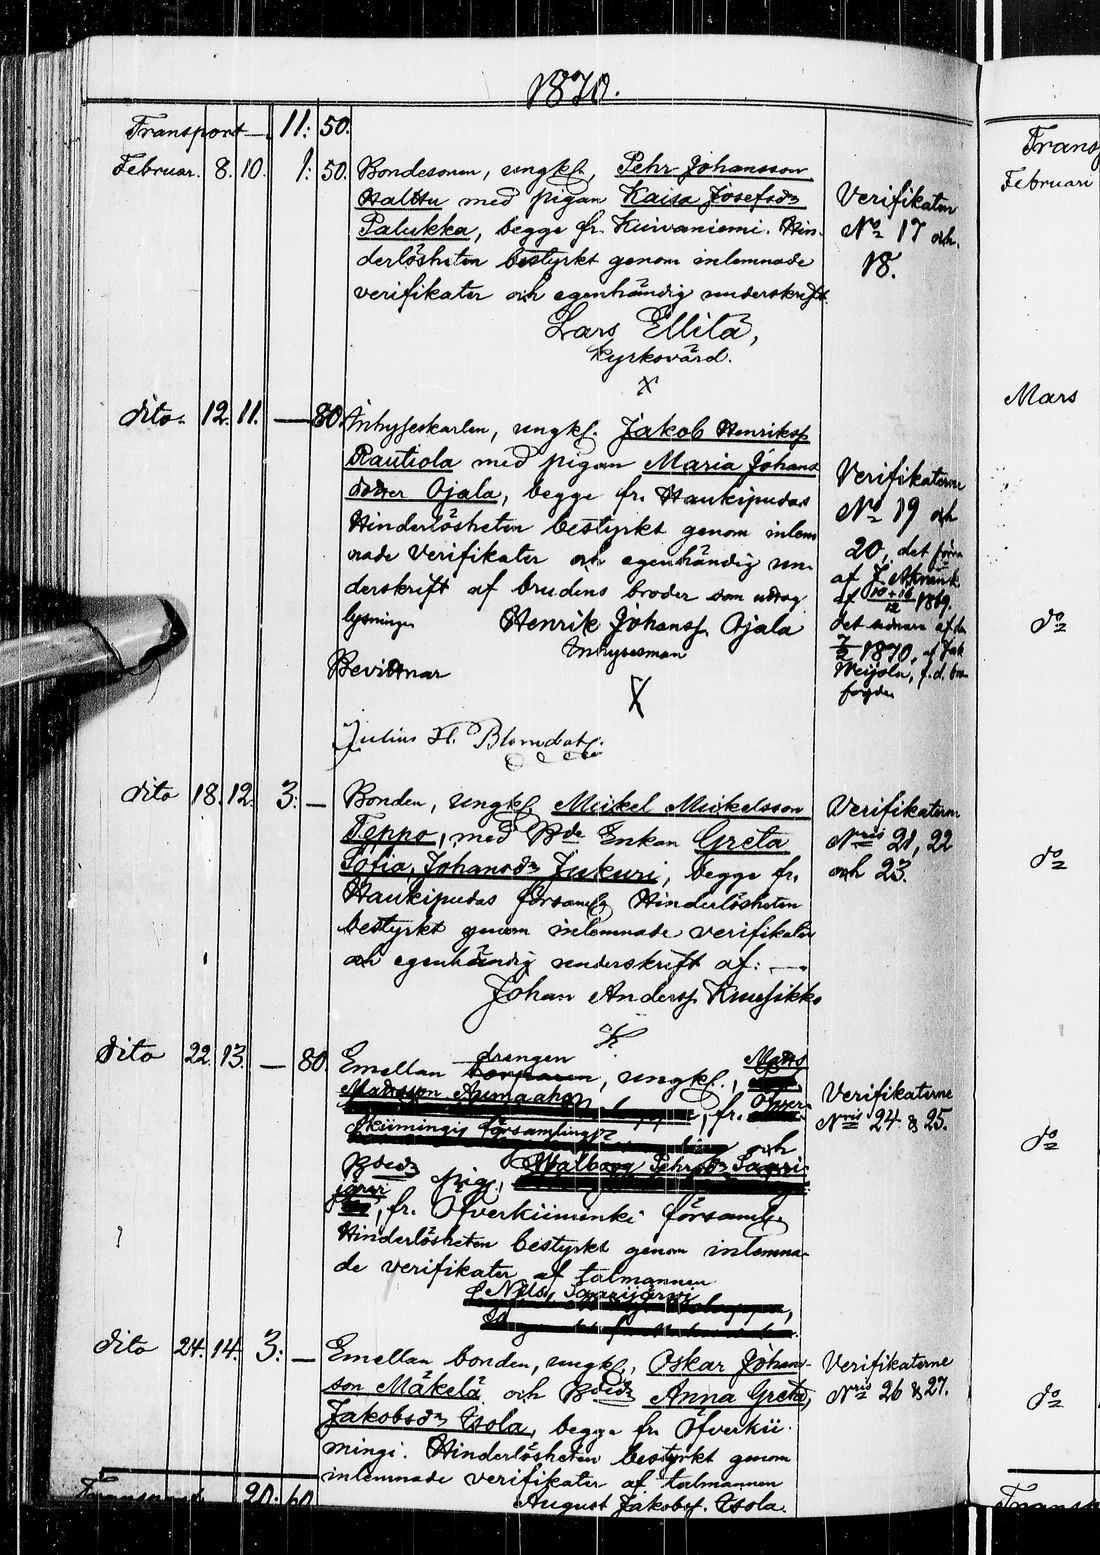 1870.
Transport — 11: 50.
Februar. 8. 10. 1: 50. Bondesonen, ungkl., Pehr Johansson
Halttu med pigan Kaisa Josefsdr
Palukka, begge fr. Kuivaniemi. Hin-
derlösheten bestyrkt genom inlemnade
verifikater och egenhändig underskrift
Lars Ellilä,
Kyrkovärd.
X
Verifikaten
No 17 och
18.
dito. 12. 11. — 80. Inhyseskarlen, ungkl. Jakob Henriksf.
Rautiola med pigan Maria Johans
dotter Ojala, begge fr. Haukipudas
Hinderlösheten bestyrkt genom inlem
nade verifikater och egenhändig un-
derskrift af brudens broder som uttog
lysningen Henrik Johansf. Ojala
Inhysesman
Bevittnar X
Julius H. Blomdahl.
Verifikaterne
No 19 och
20, det förra
af J.
af 1869,
det senare af den
1870, af Jak.
Weijola, f.d.
dito 18. 12. 3: — Bonden, ungkl. Mickel Mickelsson
Teppo, med Bde Enkan Greta
Sofia Johansdr Jukuri, begge fr.
Haukipudas församlg Hinderlösheten
bestyrkt genom inlemnade verifikater
och egenhändig underskrift af: —
Johan Andersf. Kuusikko
Verifikaterne
Nris 21, 22
och 23.
dito 22. 13. — 80. Emellan drengen, ungkl., Matts
Mattsson Aumaaho, fr. Öfver-
kiimingis församling och
Bdedr pig. Walborg Pehrsdr Saari
järvi, fr. Öfverkiiminki församlg
Hinderlösheten bestyrkt genom inlemna-
de verifikater af talmannen
Nils Saarijärvi
Verifikaterne
Nris 24 & 25.
dito 24. 14. 3: — Emellan bonden, ungkl., Oskar Johans-
son Mäkelä och Bdedr Anna Greta
Jakobsdr Isola, begge fr. Öfverkii-
mingi. Hinderlösheten bestyrkt genom
inlemnade verifikater af talmannen
August Jakobsf. Isola.
Verifikaterne
Nris 26 & 27.
Transport 20: 60
Transp
Februari
Mars
do
do
do
do
Transp